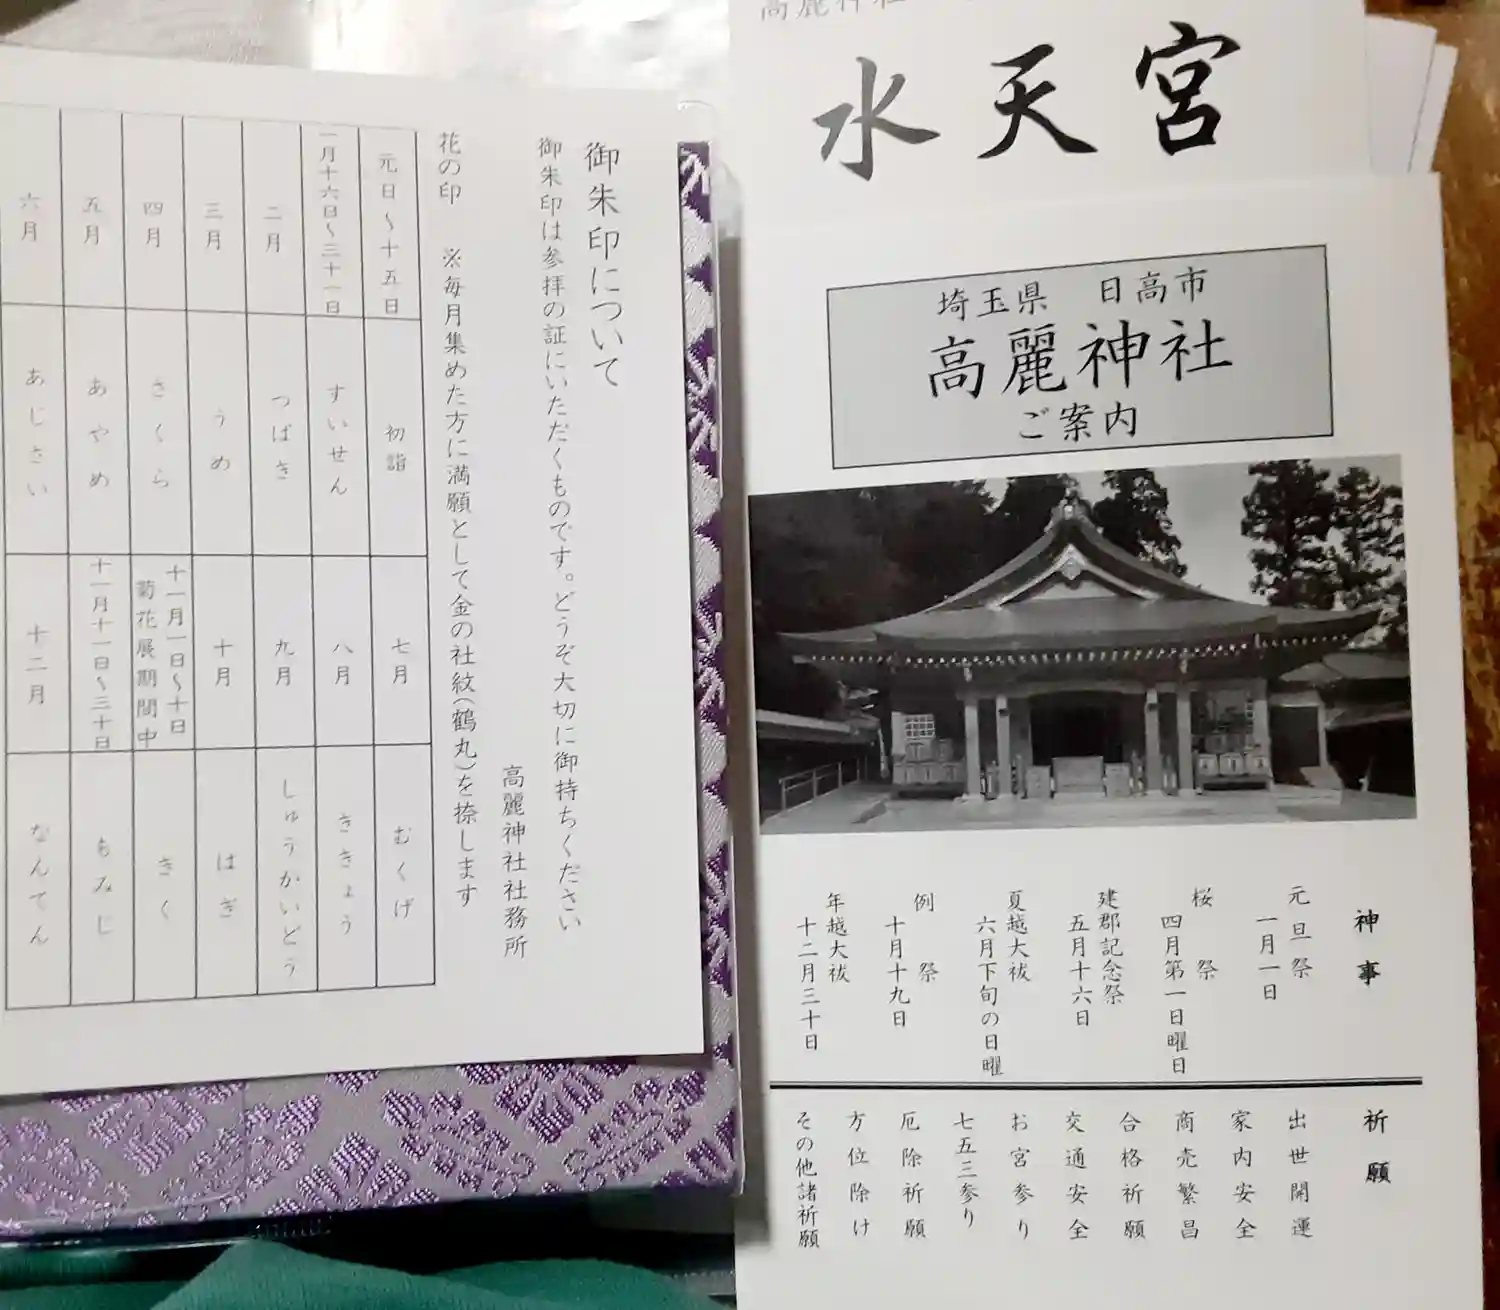 御朱印について
御朱印は参拝の証にいただくものです。どうぞ大切に御持ちください
高麗神社社務所
花の印 ※毎月集めた方に満願として金の社紋(鶴丸)を捺します
元日～十五日
初詣
七月
むくげ
一月十六日～三十一日
すいせん
八月
ききょう
二月
つばき
九月
しゅうかいどう
三月
うめ
十月
はぎ
四月
さくら
十一月一日～十日
菊花展期間中
きく
五月
あやめ
十一月十一日～三十日
もみじ
六月
あじさい
十二月
なんてん
高麗神社
水天宮
埼玉県 日高市
高麗神社
ご案内
神事
元旦祭
一月一日
桜祭
四月第一日曜日
建郡記念祭
五月十六日
夏越大祓
六月下旬の日曜
例祭
十月十九日
年越大祓
十二月三十日
祈願
出世開運
家内安全
商売繁昌
合格祈願
交通安全
お宮参り
七五三参り
厄除祈願
方位除け
その他諸祈願